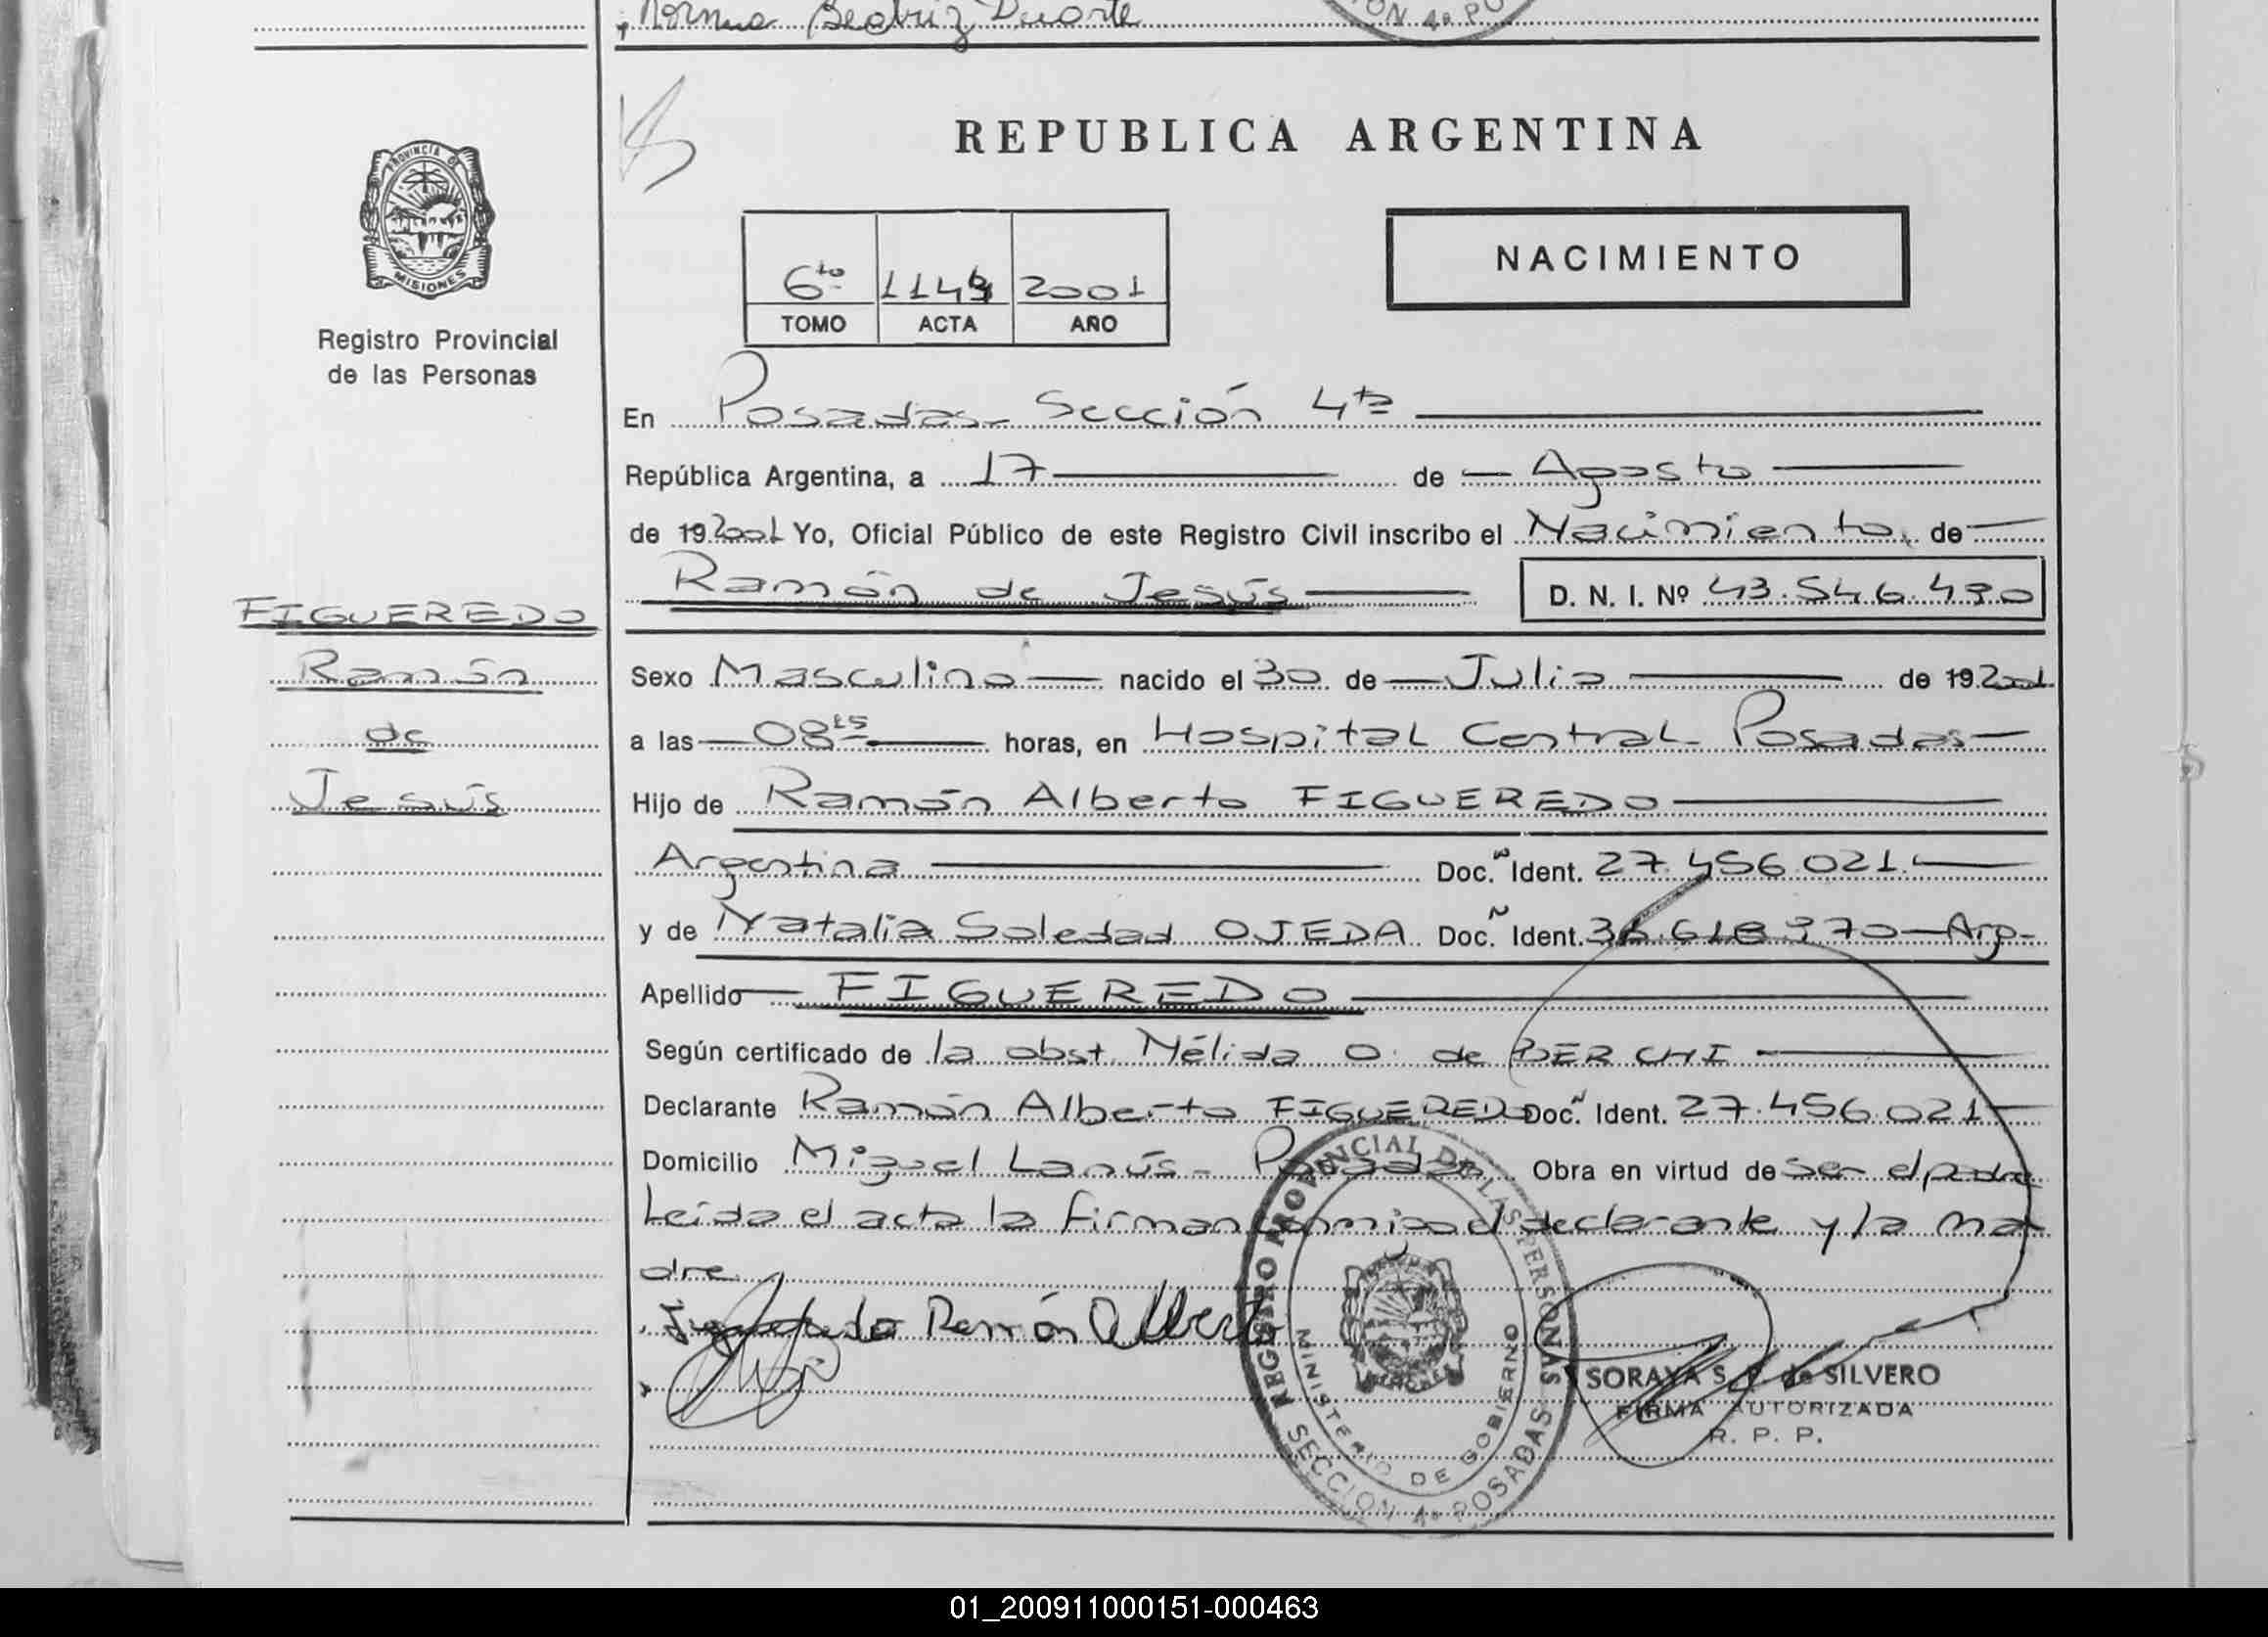 Norma Beatriz Duarte
REPUBLICA ARGENTINA
PROVINCIA DE
MISIONES
Registro Provincial
de las Personas
NACIMIENTO
6to 2001
TOMO ACTA AÑO
En Posadas - Sección 4ta
República Argentina, a 17 de Agosto
de 19 2001 Yo, Oficial Público de este Registro Civil inscribo el Nacimiento de
Ramón de Jesús D. N. I. Nº 43.546.430
FIGUEREDO
Ramón
de
Jesús
Sexo Masculino nacido el 30 de Julio de 19 2001
a las 08 15 horas, en Hospital Central - Posadas
Hijo de Ramón Alberto FIGUEREDO
Argentina Doc. Ident. 27.456.021
y de Natalia Soledad OJEDA Doc. Ident. Arg-
Apellido FIGUEREDO
Según certificado de la obst. Nélida O. de BERCHI
Declarante Ramón Alberto FIGUEREDO Doc. Ident. 27.456.021
Domicilio Miguel Lanús - Posadas Obra en virtud de ser el padre
Leída el acta la firman conmigo el declarante y la ma
dre
Figueredo Ramón Alberto
REGISTRO PROVINCIAL DE LAS PERSONAS
MINISTERIO DE GOBIERNO
SECCION 4a POSADAS
SORAYA S. de SILVERO
FIRMA AUTORIZADA
R. P. P.
01_200911000151-000463